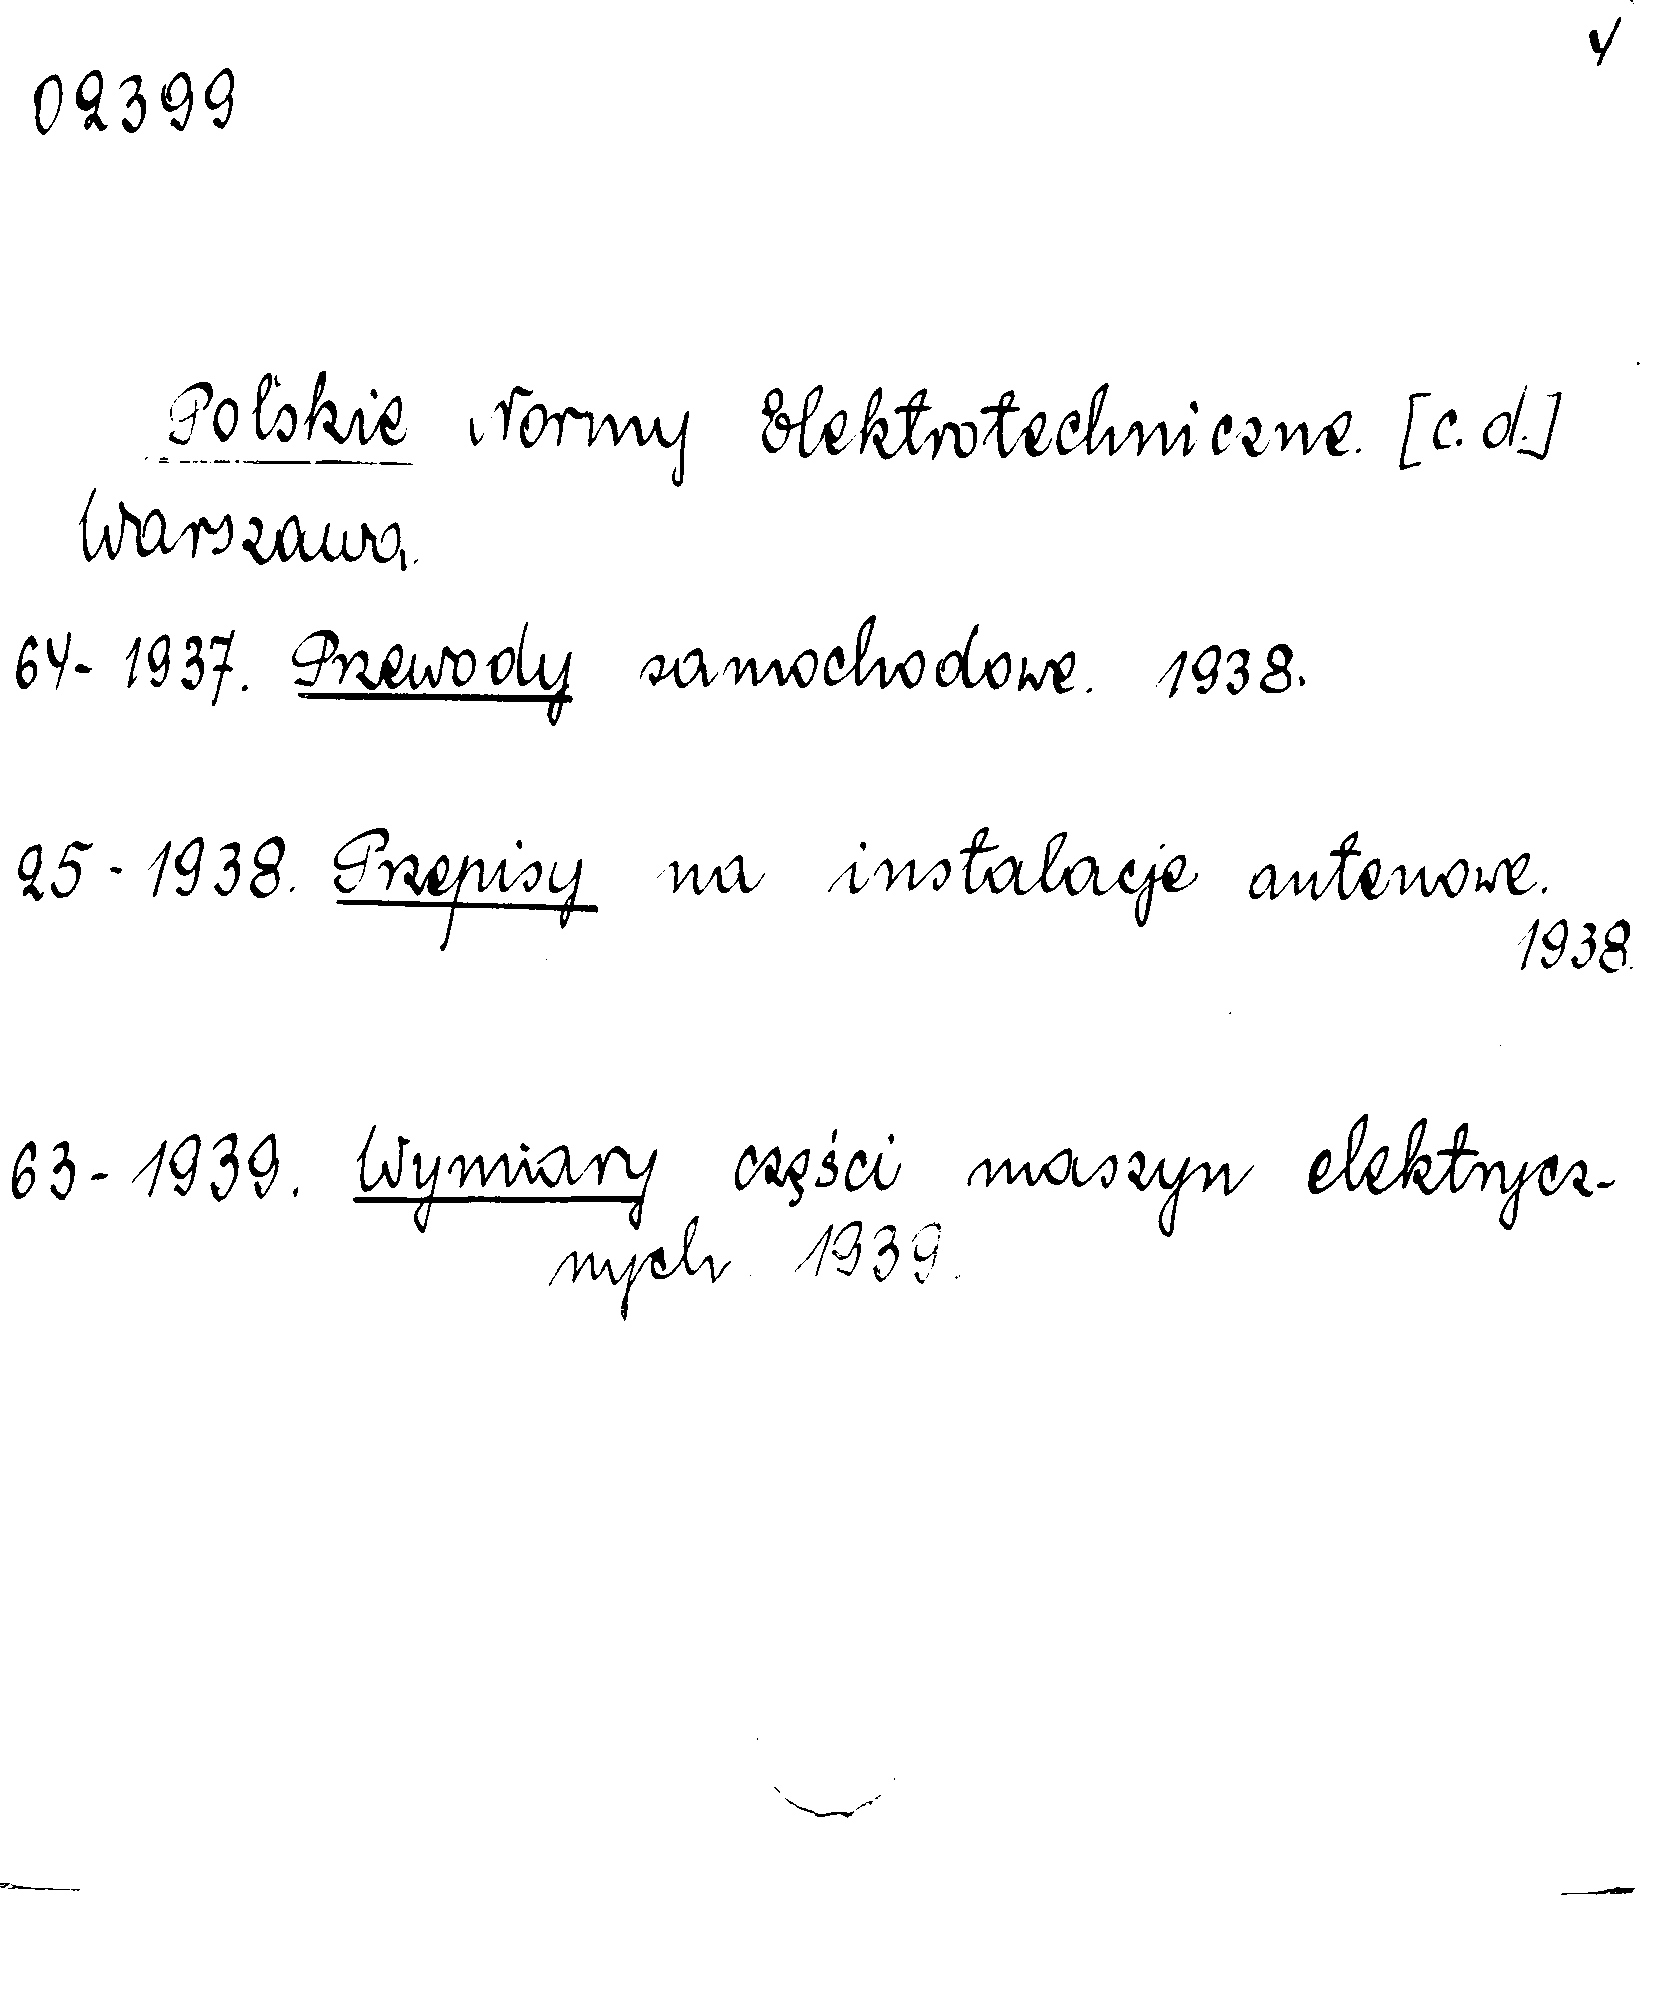 4
02399
Polskie Normy Elektrotechniczne. [c.d.]
Warszawa.
64- 1937. Przewody samochodowe. 1938.
25 - 1938. Przepisy na instalacje antenowe.
1938.
63 - 1939. Wymiary części maszyn elektrycz-
nych. 1939.